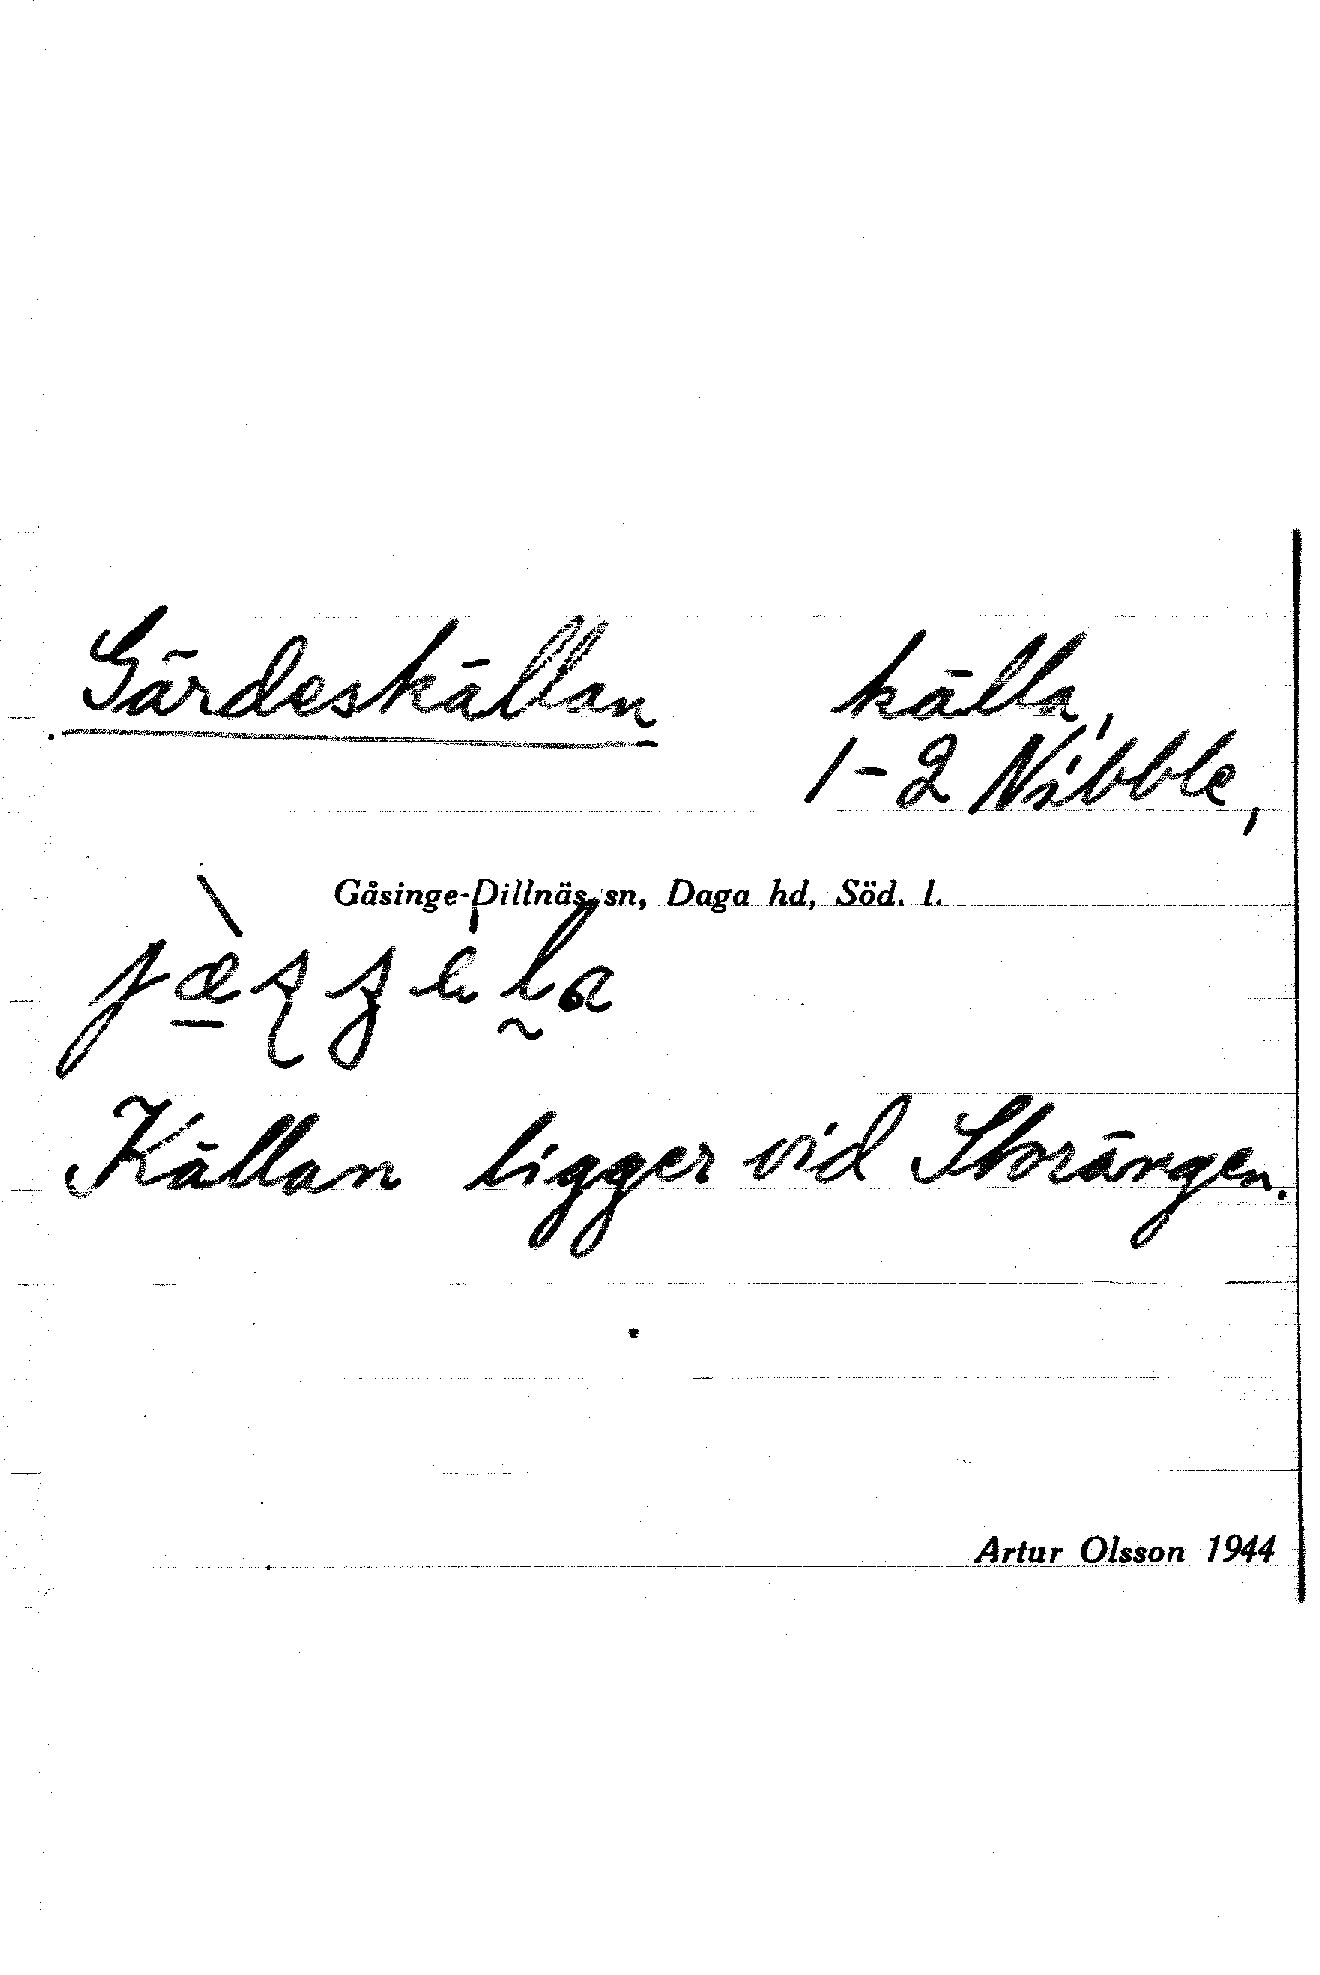 Gärdeskällan källa,
1-2 Nibble,
Gåsinge-Dillnäs sn, Daga hd, Söd. l.
Källan ligger vid Storängen.
Artur Olsson 1944